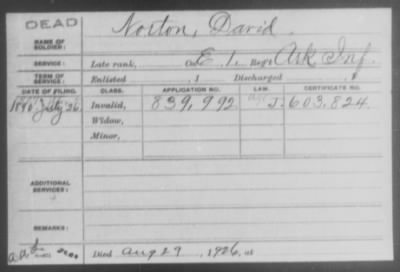 DEAD
NAME OF SOLDIER:
Norton, David.
SERVICE:
Late rank, Co. E, 1. Reg't Ark Inf.
TERM OF SERVICE:
Enlisted , 1 Discharged , 1
DATE OF FILING. CLASS. APPLICATION NO. LAW. CERTIFICATE NO.
1890 July 26. Invalid, 839,992 J. 603,824.
Widow,
Minor,
ADDITIONAL SERVICES:
REMARKS:
Died Aug 29, 1926, at